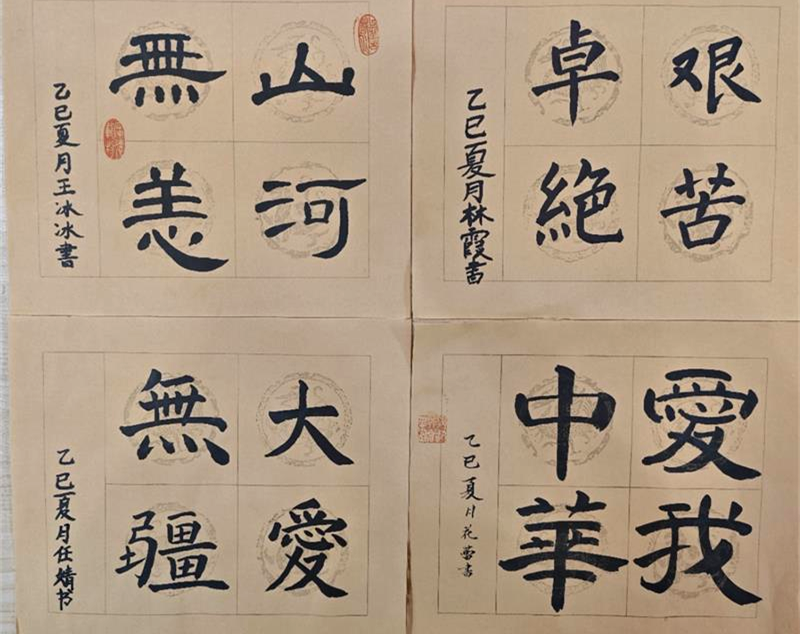 山河
無恙
乙巳夏月王冰冰書
艰苦
卓絶
乙巳夏月林霞書
大愛
無疆
乙巳夏月任婧书
愛我
中華
乙巳夏月花书